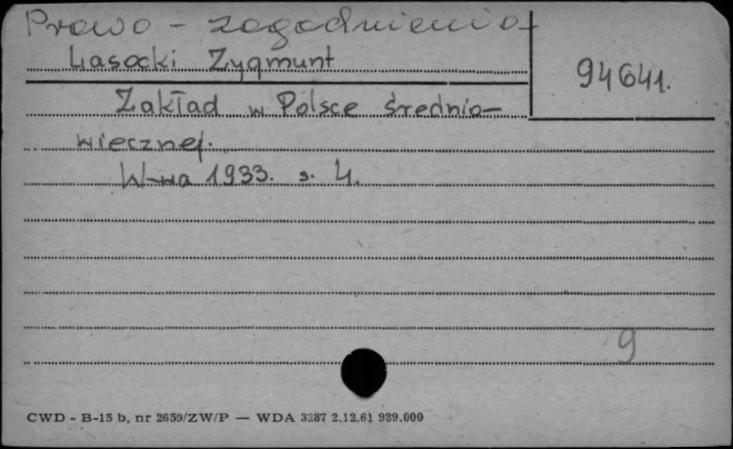 Prawo - zagadnienia
Lasocki Zygmunt
94641.
Zakład w Polsce średnio-
wiecznej.
W-wa 1933. s. 4.
9
CWD - B-15 b, nr 2659/ZW/P — WDA 3287 2.12.61 989.000